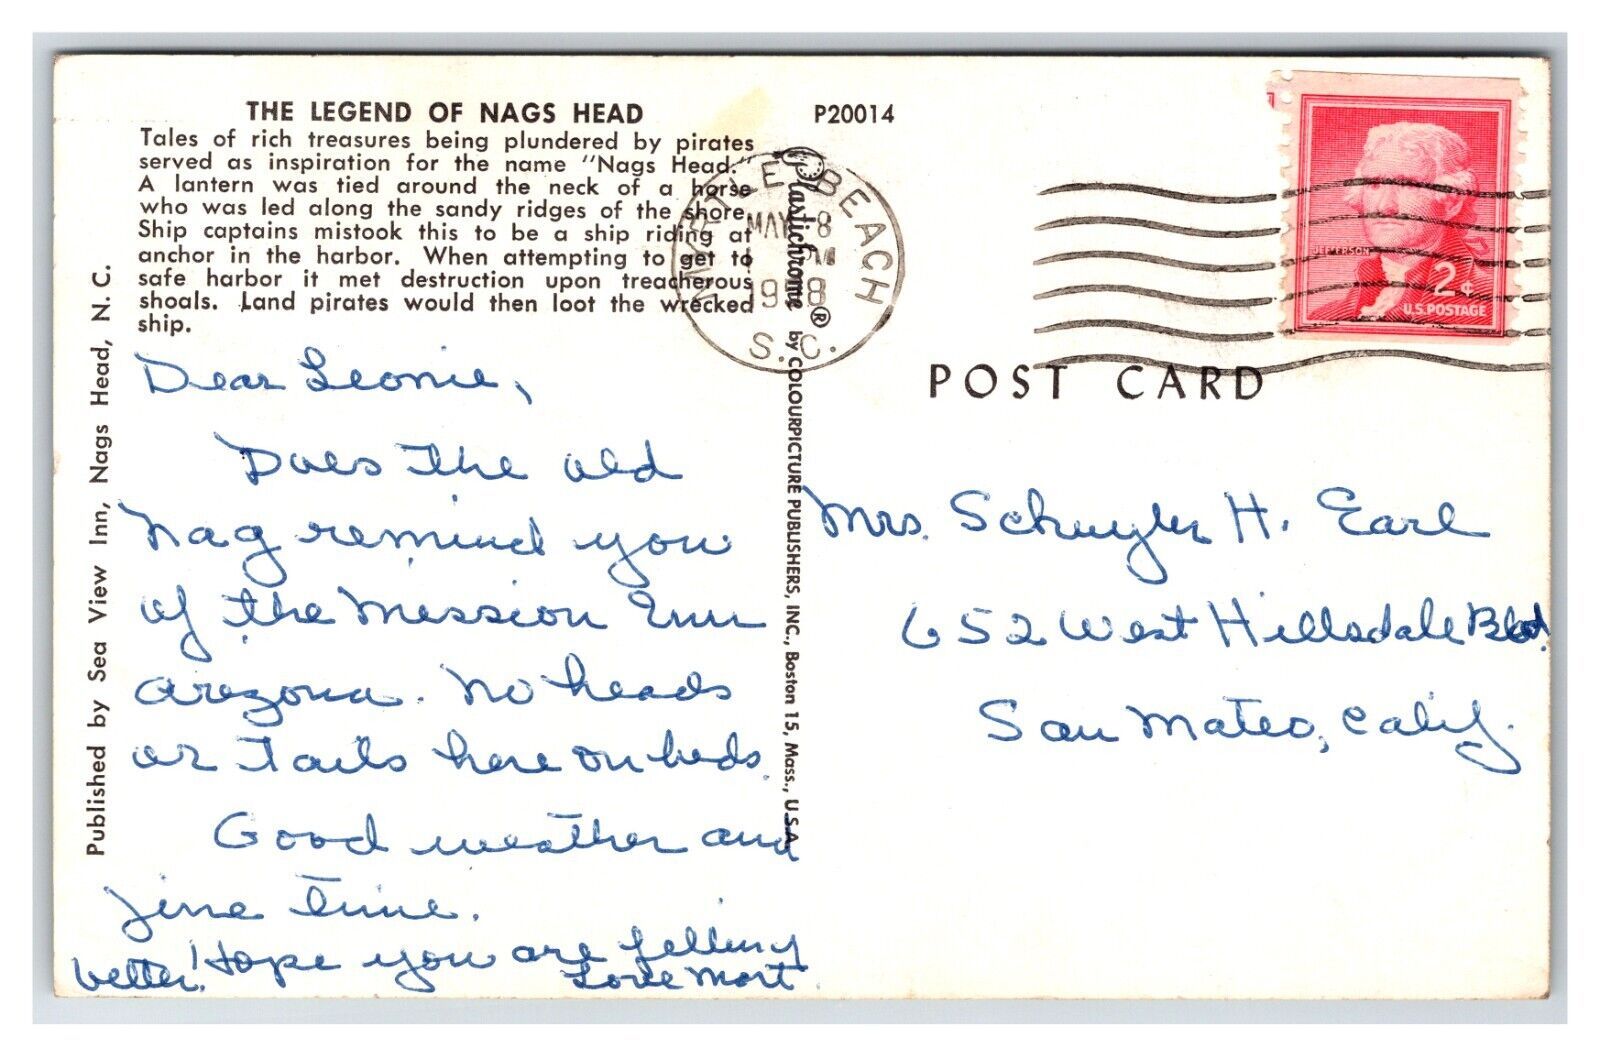 THE LEGEND OF NAGS HEAD
Tales of rich treasures being plundered by pirates
served as inspiration for the name "Nags Head."
A lantern was tied around the neck of a horse
who was led along the sandy ridges of the shore.
Ship captains mistook this to be a ship riding at
anchor in the harbor. When attempting to get to
safe harbor it met destruction upon treacherous
shoals. Land pirates would then loot the wrecked
ship.
Published by Sea View Inn, Nags Head, N. C.
Dear Leonie,
Does the old
Nag remind you
of the Mission Inn
Arizona. No heads
or tails here on beds.
Good weather and
fine time.
Hope you are felling
better!
Love Mort
P20014
Plastichrome® by COLOURPICTURE PUBLISHERS, INC., Boston 15, Mass., U.S.A.
MYRTLE BEACH
MAY 8
PM
1958
S.C.
JEFFERSON
2¢
U.S. POSTAGE
POST CARD
Mrs. Schuyler H. Earl
652 West Hillsdale Blvd.
San Mateo, Calif.